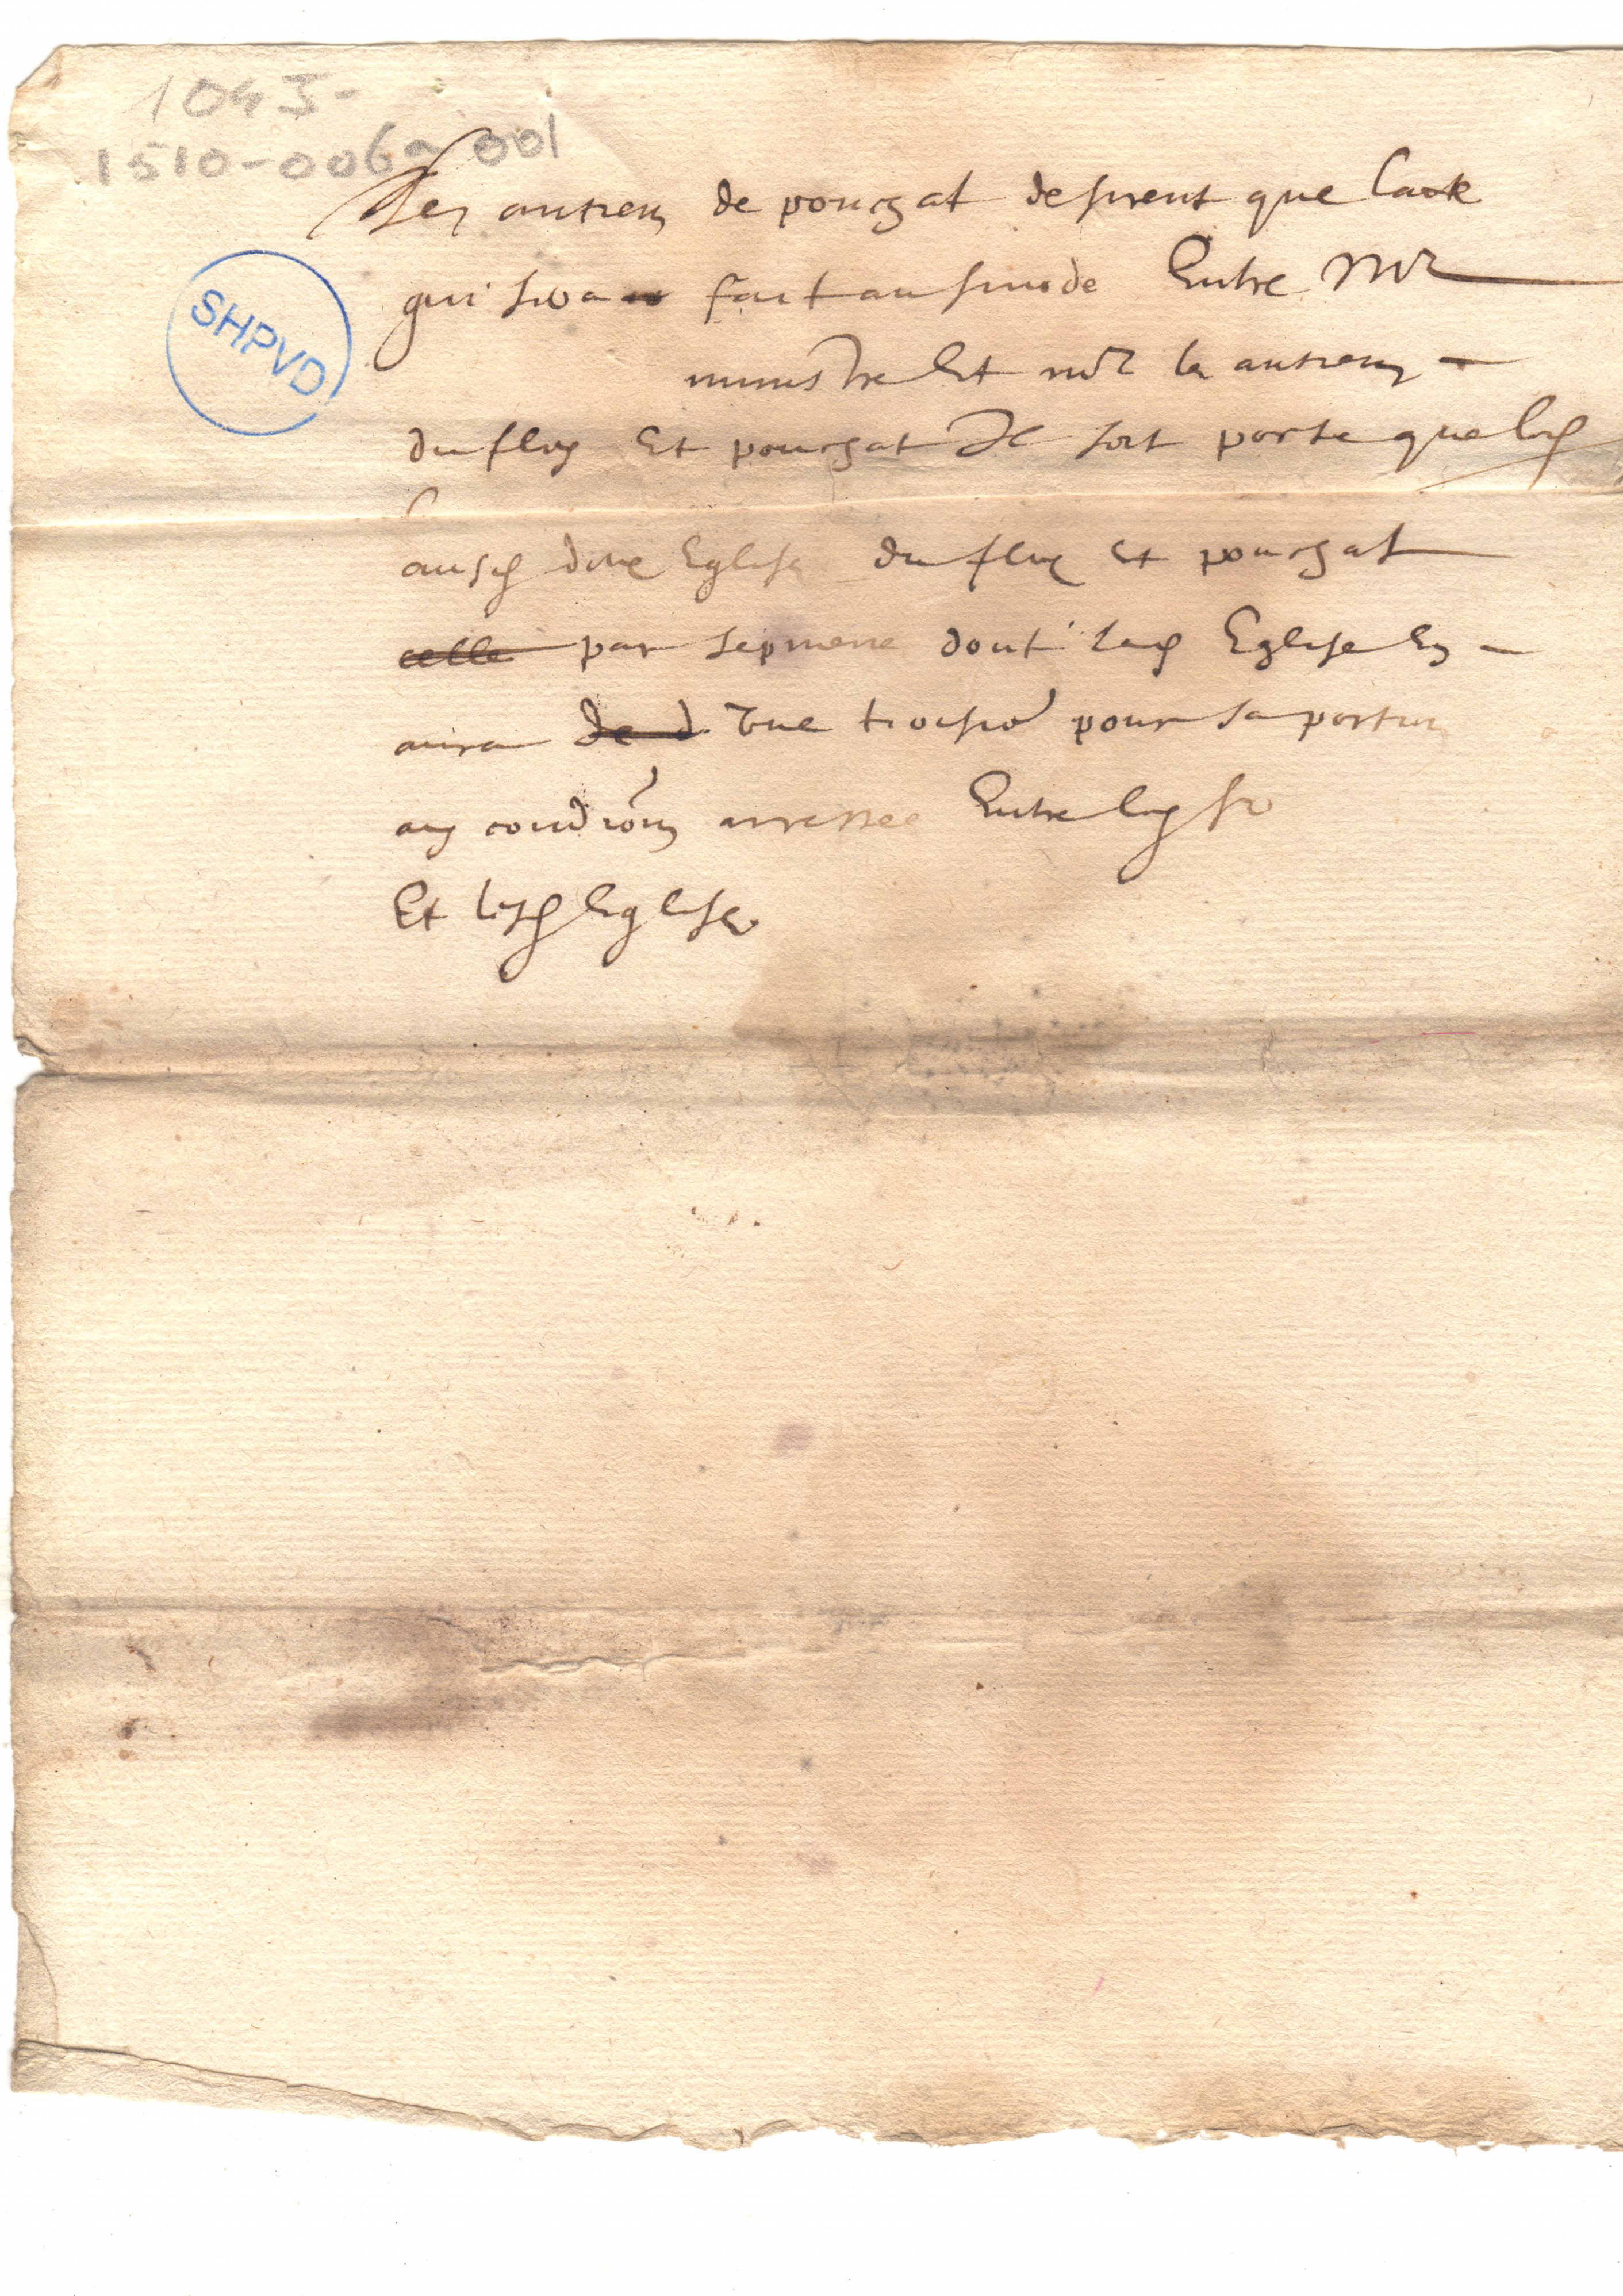 1043-
1510-006a 001
SHPVD
Les antiens de pourzat desirent que lacte
qui sera fait au sinode Entre Mr
ministre Et mrs les antiens
du fluy Et pourzat Il soit porte que
Eglise du fluy et pourzat
celle par sepmene dont lad Eglise En
aura de d Vne pour sa portion
aux conditions arrestee Entre
Et lesd Eglises